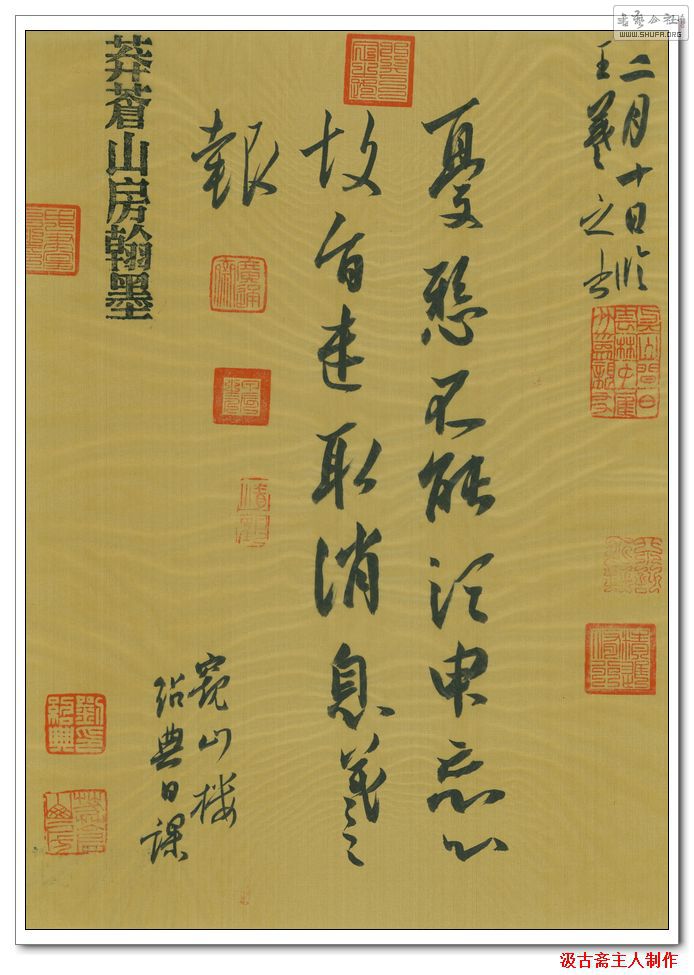 书艺公社
WWW.SHUFA.ORG
二月十日临
王羲之书
憂懸不能須臾忘心
故旨遣取消息羲之
報
山楼
绍典日课
莽蒼山房翰墨
劉印紹典
汲古斋主人制作